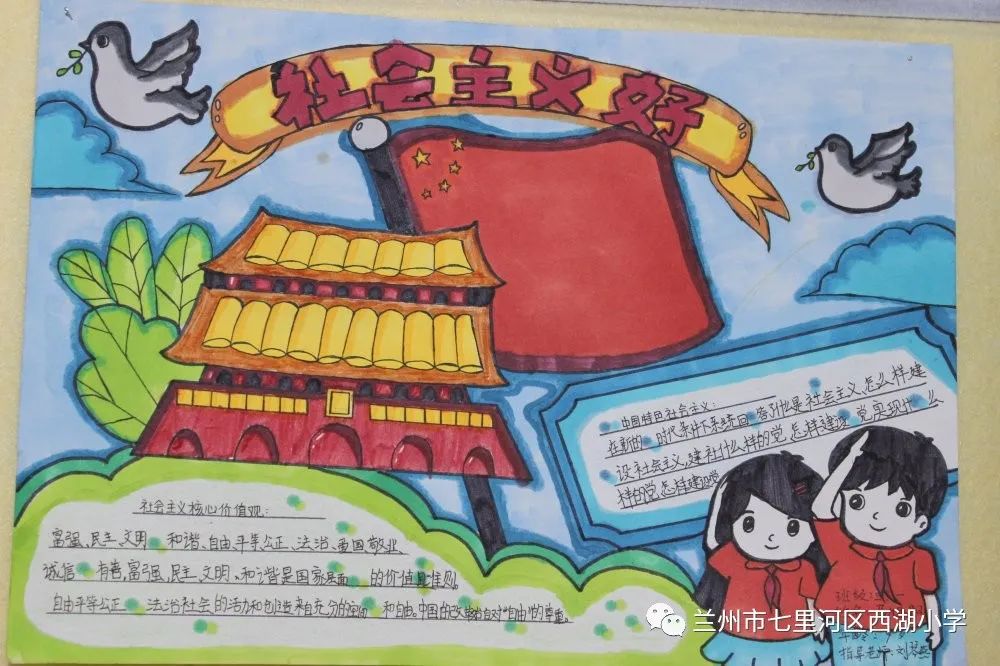 社会主义好
中国特色社会主义:
在新的 时代条件下系统回答了什么是社会主义,怎么样建
设社会主义,建设什么样的党,怎样建设党,实现什么
样的党,怎样建设党
社会主义核心价值观:
富强、民主、文明、和谐、自由、平等、公正、法治、爱国、敬业、
诚信、友善,富强、民主、文明、和谐是国家层面 的价值
自由平等公正 法治社会的活力和创造 充分的 和自由。中国的 对"自由"的尊重。
班级:
年龄:
指导老师:刘琴燕
兰州市七里河区西湖小学